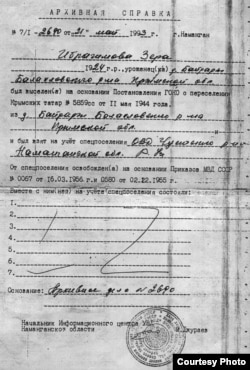 АРХИВНАЯ СПРАВКА
№ 7/I-2640 от "21" май 1993 г. г.Наманган
Ибрагимова Зера
1924 г.р., уроженец(ка) д. Байдары
Балаклавского р-на Крымской обл
был выселен(а) на основании Постановления ГОКО о переселении
Крымских татар № 5859сс от 11 мая 1944 года
из д. Байдары Балаклавского р-на
Крымской обл.
и был взят на учёт спецпоселения ОВД р-н
Наманганской обл.
От спецпоселения освобожден(а) на основании Приказов МВД СССР
№ 0067 от 16.03.1956 г. и 0580 от 02.12.1955 г.
Вместе с ним(ней) на учёте спецпоселения состояли:
1.
2.
3.
4.
5.
6.
7.
Основание: Архивное дело № 2640
Начальник Информационного центра УВД
Наманганской области
Courtesy Photo